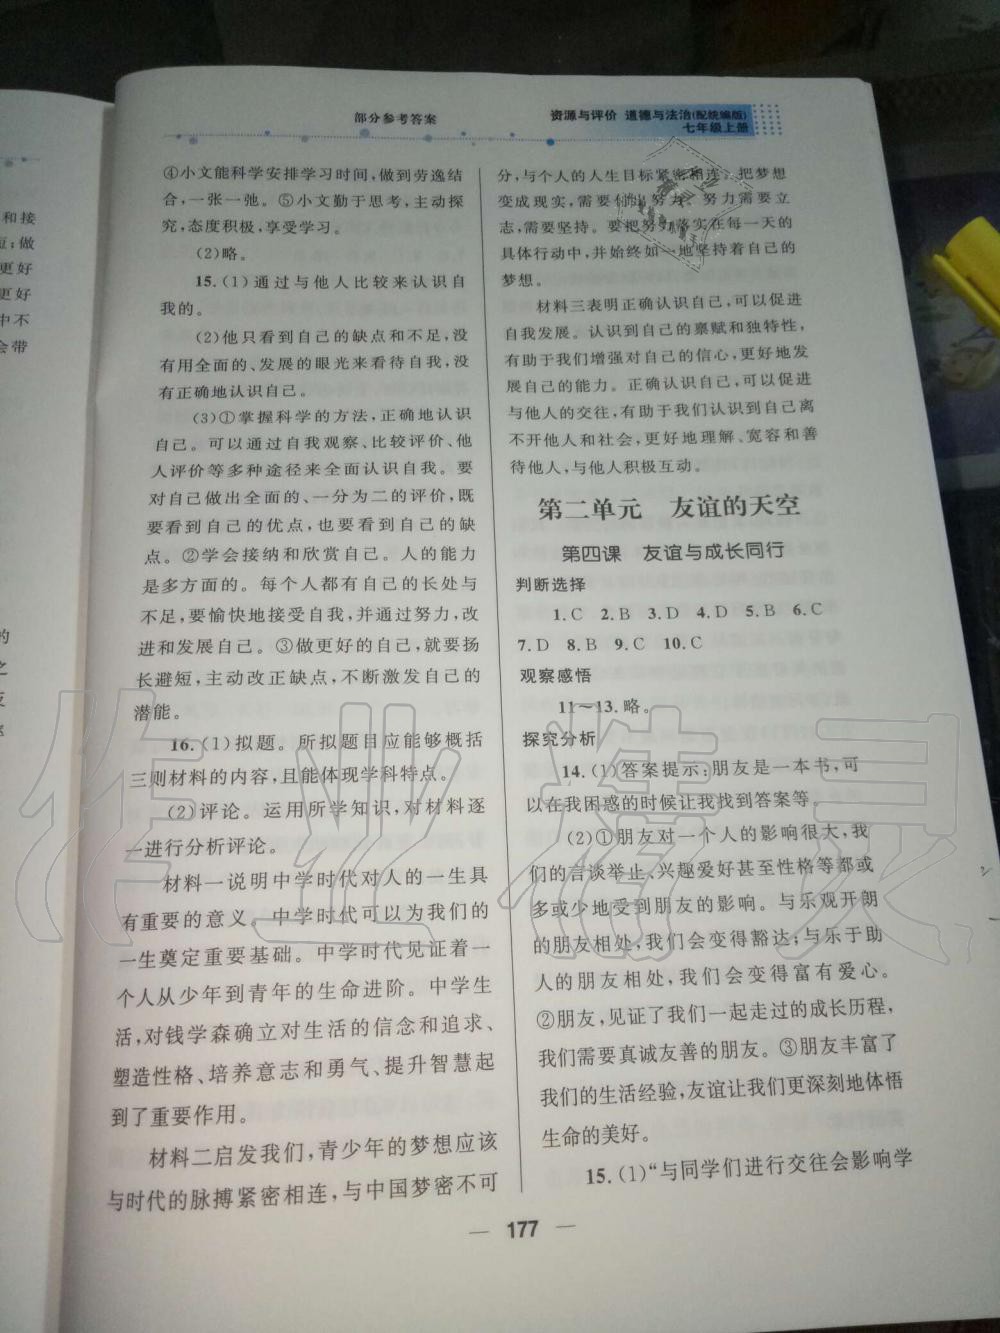 部分参考答案
资源与评价 道德与法治(配统编版)
七年级上册
④小文能科学安排学习时间,做到劳逸结
合,一张一弛。⑤小文勤于思考,主动探
究,态度积极,享受学习。
(2)略。
15.(1)通过与他人比较来认识自
我的。
(2)他只看到自己的缺点和不足,没
有用全面的、发展的眼光来看待自我,没
有正确地认识自己。
(3)①掌握科学的方法,正确地认识
自己。可以通过自我观察、比较评价、他
人评价等多种途径来全面认识自我。要
对自己做出全面的、一分为二的评价,既
要看到自己的优点,也要看到自己的缺
点。②学会接纳和欣赏自己。人的能力
是多方面的。每个人都有自己的长处与
不足,要愉快地接受自我,并通过努力,改
进和发展自己。③做更好的自己,就要扬
长避短,主动改正缺点,不断激发自己的
潜能。
16.(1)拟题。所拟题目应能够概括
三则材料的内容,且能体现学科特点。
(2)评论。运用所学知识,对材料逐
一进行分析评论。
材料一说明中学时代对人的一生具
有重要的意义。中学时代可以为我们的
一生奠定重要基础。中学时代见证着一
个人从少年到青年的生命进阶。中学生
活,对钱学森确立对生活的信念和追求、
塑造性格、培养意志和勇气、提升智慧起
到了重要作用。
材料二启发我们,青少年的梦想应该
与时代的脉搏紧密相连,与中国梦密不可
分,与个人的人生目标紧密相连;把梦想
变成现实,需要付出努力。努力需要立
志,需要坚持。要把努力落实在每一天的
具体行动中,并始终如一地坚持着自己的
梦想。
材料三表明正确认识自己,可以促进
自我发展。认识到自己的禀赋和独特性,
有助于我们增强对自己的信心,更好地发
展自己的能力。正确认识自己,可以促进
与他人的交往,有助于我们认识到自己离
不开他人和社会,更好地理解、宽容和善
待他人,与他人积极互动。
第二单元 友谊的天空
第四课 友谊与成长同行
判断选择
1.C 2.B 3.D 4.D 5.B 6.C
7.D 8.B 9.C 10.C
观察感悟
11～13.略。
探究分析
14.(1)答案提示:朋友是一本书,可
以在我困惑的时候让我找到答案等。
(2)①朋友对一个人的影响很大,我
们的言谈举止、兴趣爱好甚至性格等都或
多或少地受到朋友的影响。与乐观开朗
的朋友相处,我们会变得豁达;与乐于助
人的朋友相处,我们会变得富有爱心。
②朋友,见证了我们一起走过的成长历程,
我们需要真诚友善的朋友。③朋友丰富了
我们的生活经验,友谊让我们更深刻地体悟
生命的美好。
15.(1)“与同学们进行交往会影响学
— 177 —
作业精灵